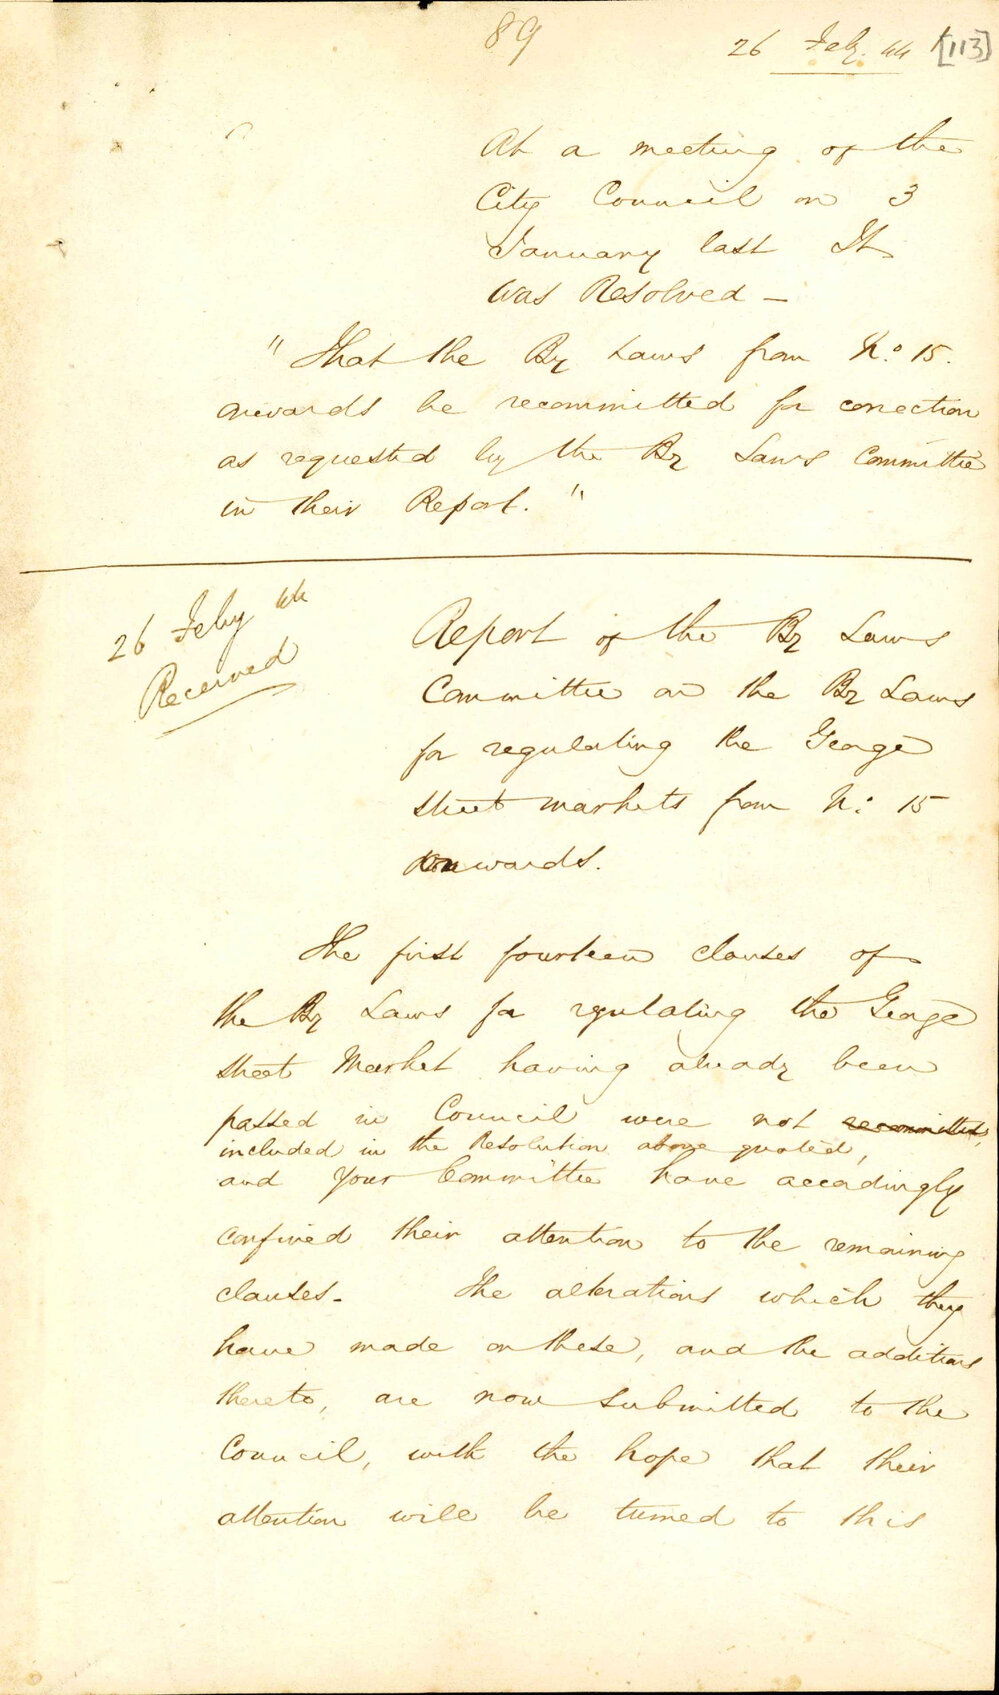 89
26 Feby. 44 [113]
At a meeting of the
City Council on 3
January last It
was Resolved —
"That the By Laws from No. 15.
onwards be recommitted for correction
as requested by the By Laws Committee
in their Report."
26 Feby 44
Received
Report of the By Laws
Committee on the By Laws
for regulating the George
Street markets from No: 15
onwards.
The first fourteen clauses of
the By Laws for regulating the George
Street Market having already been
passed in Council were not recommitted,
included in the Resolution above quoted,
and Your Committee have accordingly
confined their attention to the remaining
clauses. The alterations which they
have made on these, and the additions
thereto, are now submitted to the
Council, with the hope that their
attention will be turned to this